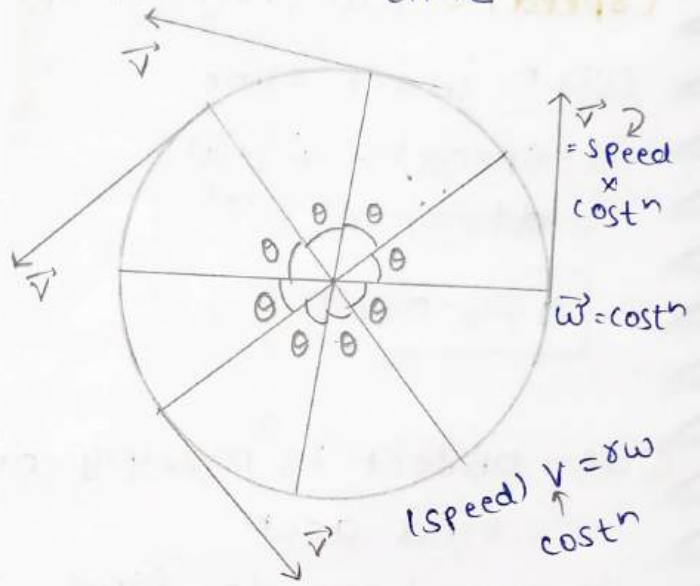 v⃗
v⃗
= speed
×
costⁿ
θ θ
θ θ
θ θ
θ θ
v⃗
ω⃗ = costⁿ
(speed) v = rω
↑
costⁿ
v⃗